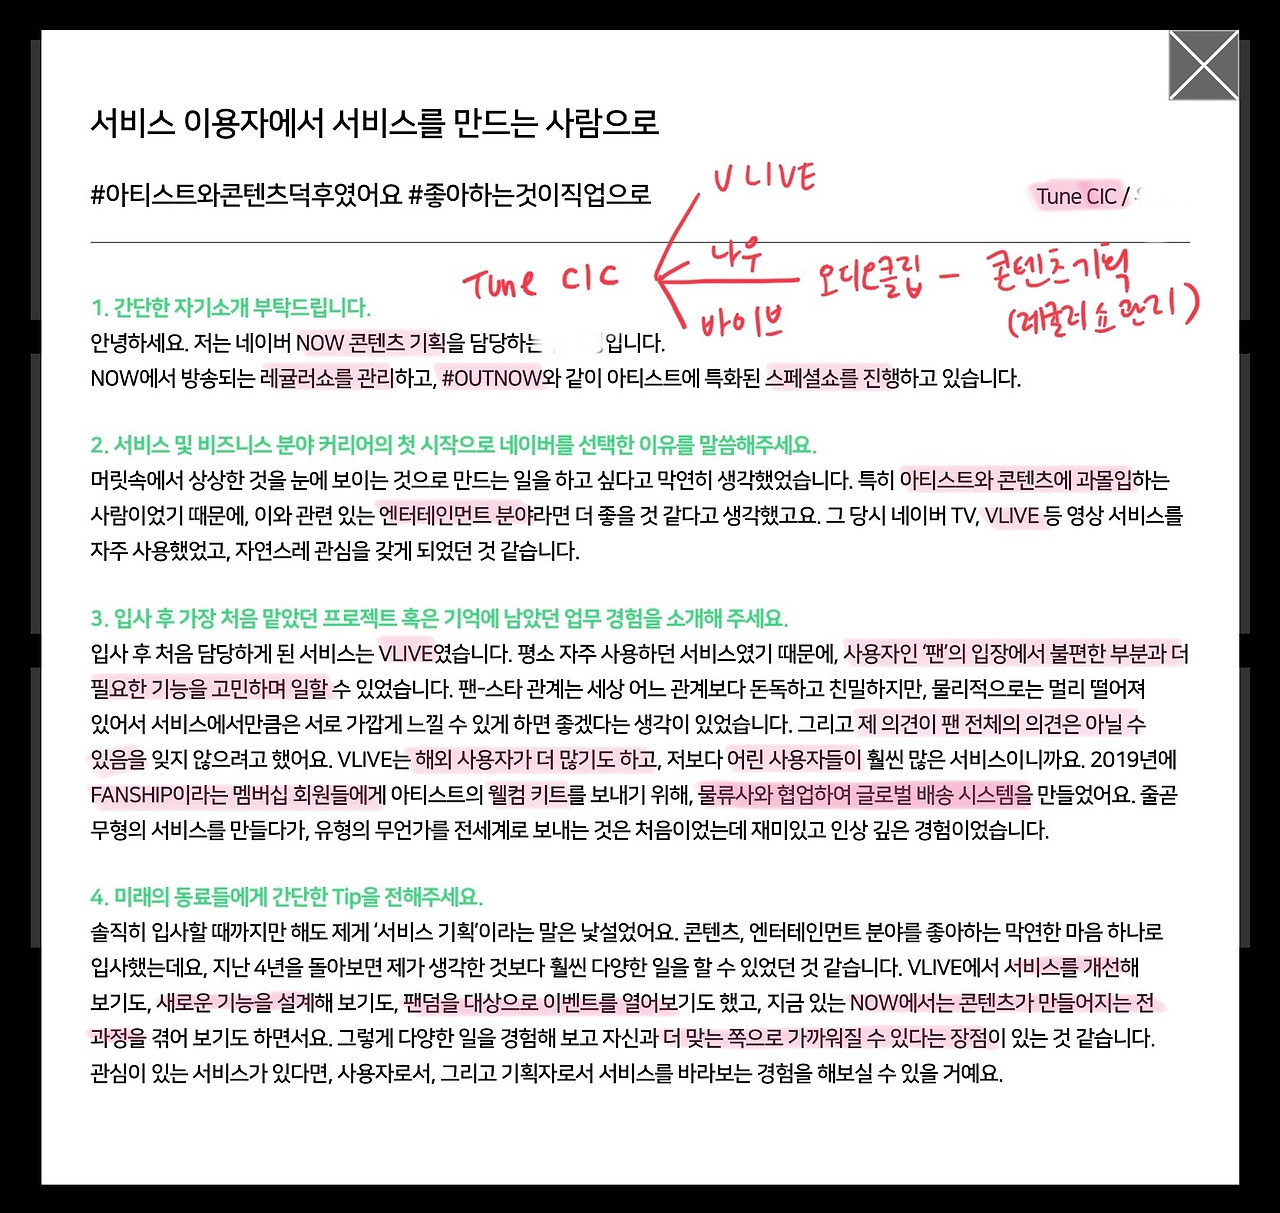 서비스 이용자에서 서비스를 만드는 사람으로
V LIVE
#아티스트와콘텐츠덕후였어요 #좋아하는것이직업으로
Tune CIC /
나우
Tune CIC
오디오클립 - 콘텐츠기획
(레귤러쇼관리)
바이브
1. 간단한 자기소개 부탁드립니다.
안녕하세요. 저는 네이버 NOW 콘텐츠 기획을 담당하는 입니다.
NOW에서 방송되는 레귤러쇼를 관리하고, #OUTNOW와 같이 아티스트에 특화된 스페셜쇼를 진행하고 있습니다.
2. 서비스 및 비즈니스 분야 커리어의 첫 시작으로 네이버를 선택한 이유를 말씀해주세요.
머릿속에서 상상한 것을 눈에 보이는 것으로 만드는 일을 하고 싶다고 막연히 생각했었습니다. 특히 아티스트와 콘텐츠에 과몰입하는
사람이었기 때문에, 이와 관련 있는 엔터테인먼트 분야라면 더 좋을 것 같다고 생각했고요. 그 당시 네이버 TV, VLIVE 등 영상 서비스를
자주 사용했었고, 자연스레 관심을 갖게 되었던 것 같습니다.
3. 입사 후 가장 처음 맡았던 프로젝트 혹은 기억에 남았던 업무 경험을 소개해 주세요.
입사 후 처음 담당하게 된 서비스는 VLIVE였습니다. 평소 자주 사용하던 서비스였기 때문에, 사용자인 '팬'의 입장에서 불편한 부분과 더
필요한 기능을 고민하며 일할 수 있었습니다. 팬-스타 관계는 세상 어느 관계보다 돈독하고 친밀하지만, 물리적으로는 멀리 떨어져
있어서 서비스에서만큼은 서로 가깝게 느낄 수 있게 하면 좋겠다는 생각이 있었습니다. 그리고 제 의견이 팬 전체의 의견은 아닐 수
있음을 잊지 않으려고 했어요. VLIVE는 해외 사용자가 더 많기도 하고, 저보다 어린 사용자들이 훨씬 많은 서비스이니까요. 2019년에
FANSHIP이라는 멤버십 회원들에게 아티스트의 웰컴 키트를 보내기 위해, 물류사와 협업하여 글로벌 배송 시스템을 만들었어요. 줄곧
무형의 서비스를 만들다가, 유형의 무언가를 전세계로 보내는 것은 처음이었는데 재미있고 인상 깊은 경험이었습니다.
4. 미래의 동료들에게 간단한 Tip을 전해주세요.
솔직히 입사할 때까지만 해도 제게 '서비스 기획'이라는 말은 낯설었어요. 콘텐츠, 엔터테인먼트 분야를 좋아하는 막연한 마음 하나로
입사했는데요, 지난 4년을 돌아보면 제가 생각한 것보다 훨씬 다양한 일을 할 수 있었던 것 같습니다. VLIVE에서 서비스를 개선해
보기도, 새로운 기능을 설계해 보기도, 팬덤을 대상으로 이벤트를 열어보기도 했고, 지금 있는 NOW에서는 콘텐츠가 만들어지는 전
과정을 겪어 보기도 하면서요. 그렇게 다양한 일을 경험해 보고 자신과 더 맞는 쪽으로 가까워질 수 있다는 장점이 있는 것 같습니다.
관심이 있는 서비스가 있다면, 사용자로서, 그리고 기획자로서 서비스를 바라보는 경험을 해보실 수 있을 거예요.